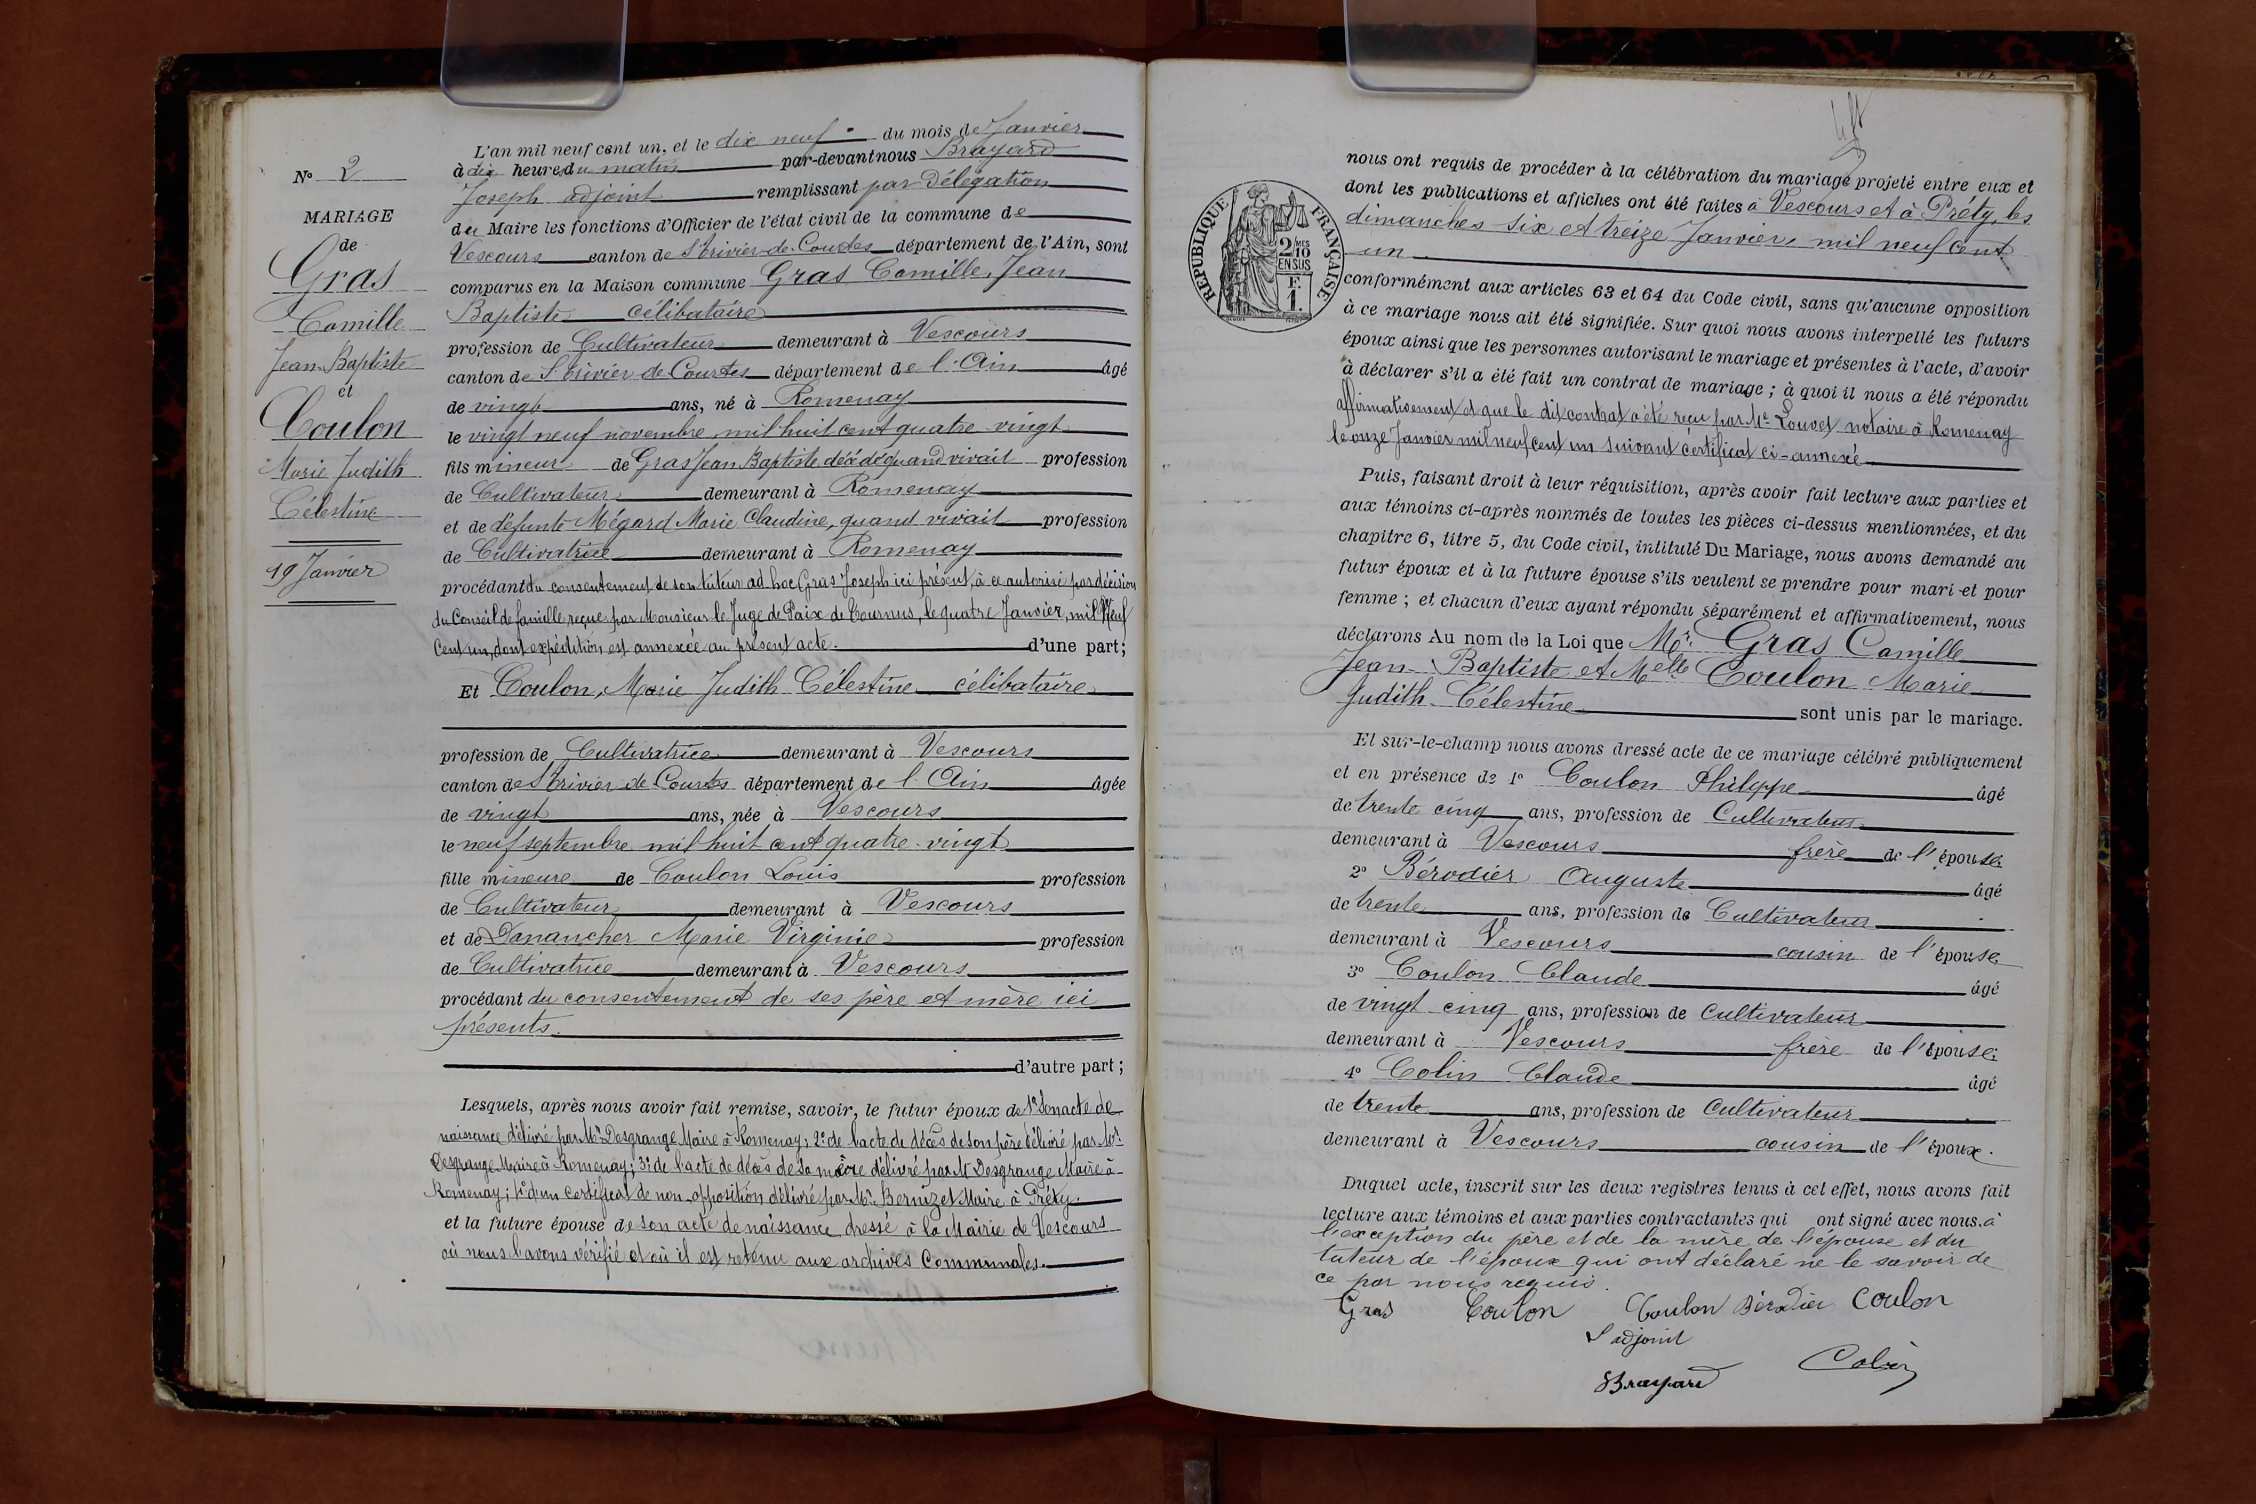 N° 2
MARIAGE
de
Gras
Camille
Jean-Baptiste
et
Coulon
Marie Judith
Célestine
19 Janvier
L'an mil neuf cent un, et le dix neuf du mois de Janvier
à dix heures du matin par-devant nous Brayard
Joseph adjoint remplissant par Délégation
du Maire les fonctions d'Officier de l'état civil de la commune de
Vescours canton de St Trivier-de-Courtes département de l'Ain, sont
comparus en la Maison commune Gras Camille, Jean
Baptiste célibataire
profession de Cultivateur demeurant à Vescours
canton de St Trivier de Courtes département de l'Ain âgé
de vingt ans, né à Romenay
le vingt neuf novembre mil huit cent quatre-vingt
fils mineur de Gras Jean Baptiste décédé quand vivait profession
de Cultivateur demeurant à Romenay
et de défunte Mégard Marie Claudine, quand vivait profession
de Cultivatrice demeurant à Romenay
procédant du consentement de son tuteur ad hoc Gras Joseph ici présent, à ce autorisé par décision
du Conseil de famille reçue par Monsieur le Juge de Paix de Tournus, le quatre Janvier, mil Neuf
Cent un, dont expédition est annexée au présent acte. d'une part;
Et Coulon, Marie Judith Célestine célibataire
profession de Cultivatrice demeurant à Vescours
canton de St Trivier de Courtes département de l'Ain âgée
de vingt ans, née à Vescours
le neuf septembre mil huit cent quatre-vingt
fille mineure de Coulon Louis profession
de Cultivateur demeurant à Vescours
et de Danancher Marie Virginie profession
de Cultivatrice demeurant à Vescours
procédant du consentement de ses père et mère ici
présents.
d'autre part;
Lesquels, après nous avoir fait remise, savoir, le futur époux de 1° Son acte de
naissance délivré par Mr Desgrange Maire à Romenay; 2° de l'acte de décès de son père délivré par Mr
Desgrange Maire à Romenay; 3° de l'acte de décès de sa mère délivré par M Desgrange Maire à
Romenay; 4° d'un certificat de non-opposition délivré par Mr Bernizet Maire à Préty.
et la future épouse de son acte de naissance dressé à la Mairie de Vescours
où nous l'avons vérifié et où il est retenu aux archives Communales.
nous ont requis de procéder à la célébration du mariage projeté entre eux et
dont les publications et affiches ont été faites à Vescours et à Préty, les
dimanches six et treize Janvier, mil neuf cent
un
RÉPUBLIQUE FRANÇAISE
2 MES
10
EN SUS
F.
1.
conformément aux articles 63 et 64 du Code civil, sans qu'aucune opposition
à ce mariage nous ait été signifiée. Sur quoi nous avons interpellé les futurs
époux ainsi que les personnes autorisant le mariage et présentes à l'acte, d'avoir
à déclarer s'il a été fait un contrat de mariage; à quoi il nous a été répondu
affirmativement et que le dit contrat a été reçu par Me Louvet notaire à Romenay
le onze Janvier mil neuf cent un suivant certificat ci-annexé
Puis, faisant droit à leur réquisition, après avoir fait lecture aux parties et
aux témoins ci-après nommés de toutes les pièces ci-dessus mentionnées, et du
chapitre 6, titre 5, du Code civil, intitulé Du Mariage, nous avons demandé au
futur époux et à la future épouse s'ils veulent se prendre pour mari et pour
femme; et chacun d'eux ayant répondu séparément et affirmativement, nous
déclarons Au nom de la Loi que Mr. Gras Camille
Jean-Baptiste et Melle Coulon Marie
Judith Célestine sont unis par le mariage.
Et sur-le-champ nous avons dressé acte de ce mariage célébré publiquement
et en présence de 1° Coulon Philippe âgé
de trente cinq ans, profession de Cultivateur
demeurant à Vescours frère de l'épouse
2° Bérodier Auguste âgé
de trente ans, profession de Cultivateur
demeurant à Vescours cousin de l'épouse
3° Coulon Claude âgé
de vingt cinq ans, profession de Cultivateur
demeurant à Vescours frère de l'épouse
4° Colin Claude âgé
de trente ans, profession de Cultivateur
demeurant à Vescours cousin de l'époux.
Duquel acte, inscrit sur les deux registres tenus à cet effet, nous avons fait
lecture aux témoins et aux parties contractantes qui ont signé avec nous. à
l'exception du père et de la mère de l'épouse et du
tuteur de l'époux qui ont déclaré ne le savoir de
ce par nous requis.
Gras Coulon Coulon Bérodier Coulon
L'adjoint
Colin
Brayard